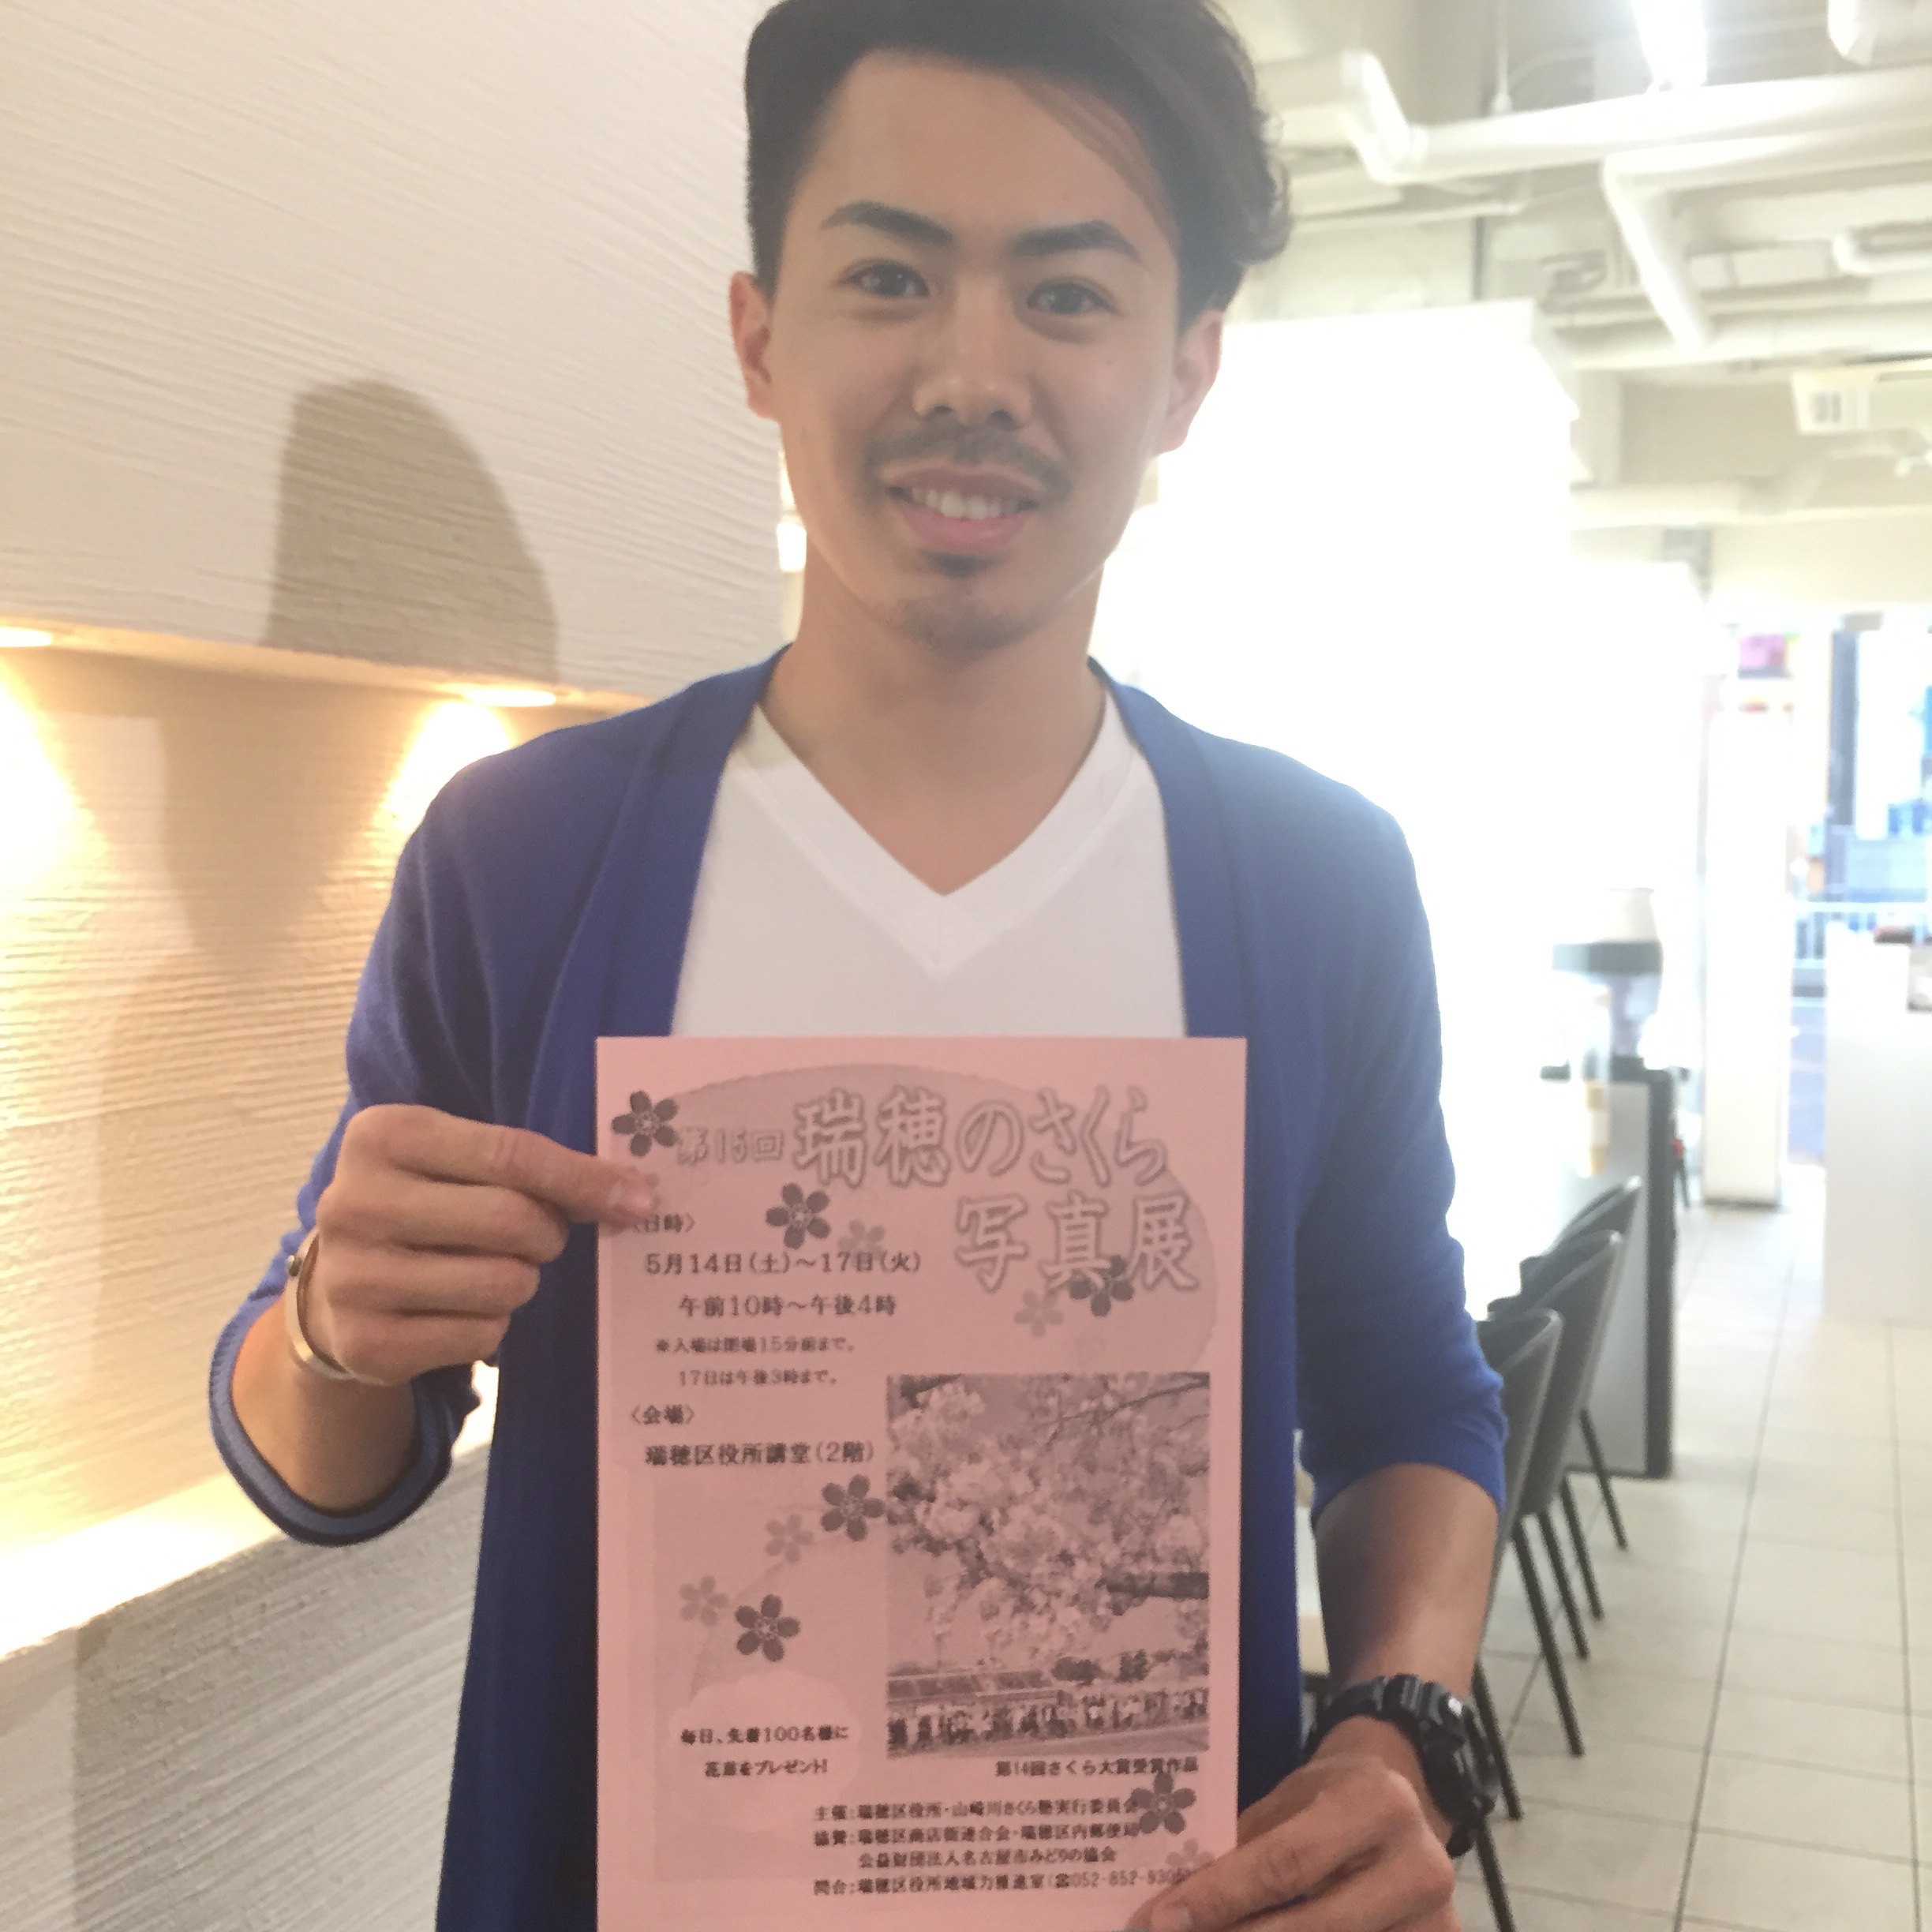 第15回 瑞穂のさくら
写真展
〈日時〉
5月14日(土)〜17日(火)
午前10時〜午後4時
※入場は閉場15分前まで。
17日は午後3時まで。
〈会場〉
瑞穂区役所講堂(2階)
毎日、先着100名様に
花苗をプレゼント!
第14回さくら大賞受賞作品
主催:瑞穂区役所・山崎川さくら塾実行委員会
協賛:瑞穂区商店街連合会・瑞穂区内郵便局
公益財団法人名古屋市みどりの協会
問合:瑞穂区役所地域力推進室(☎052-852-